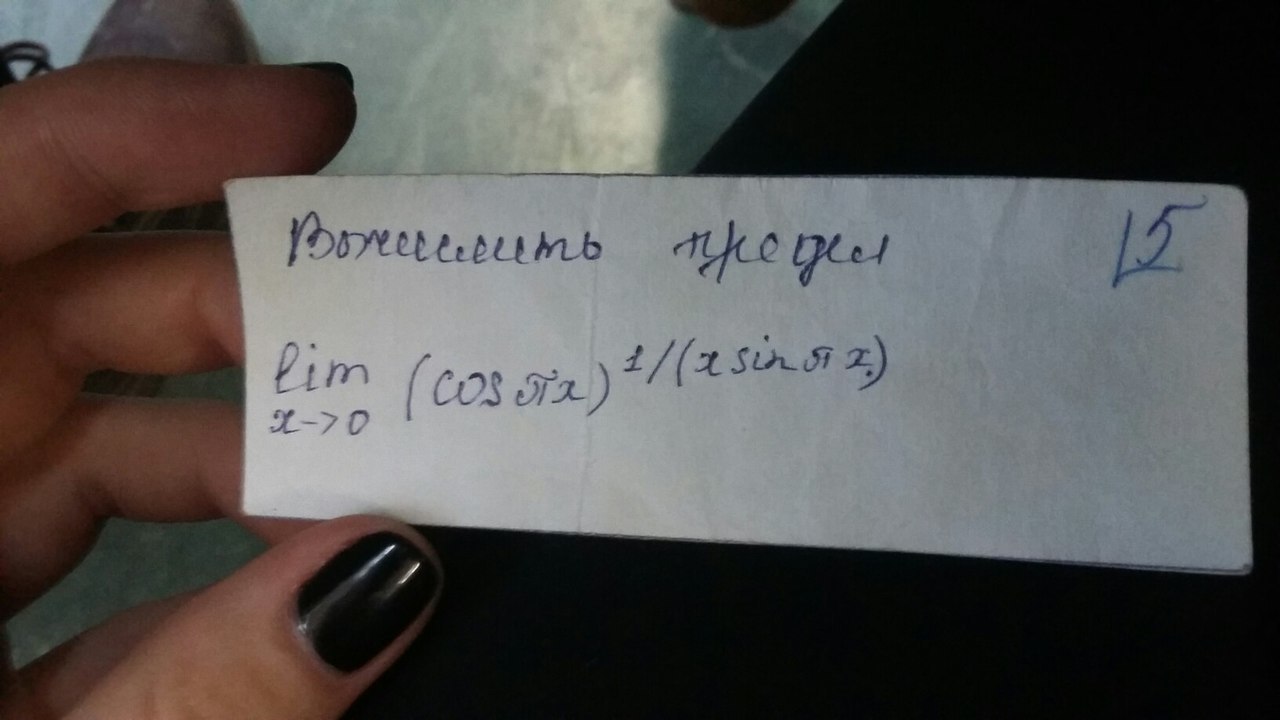 Вычислить предел 15
lim (cos πx)^1/(x sin πx)
x->0